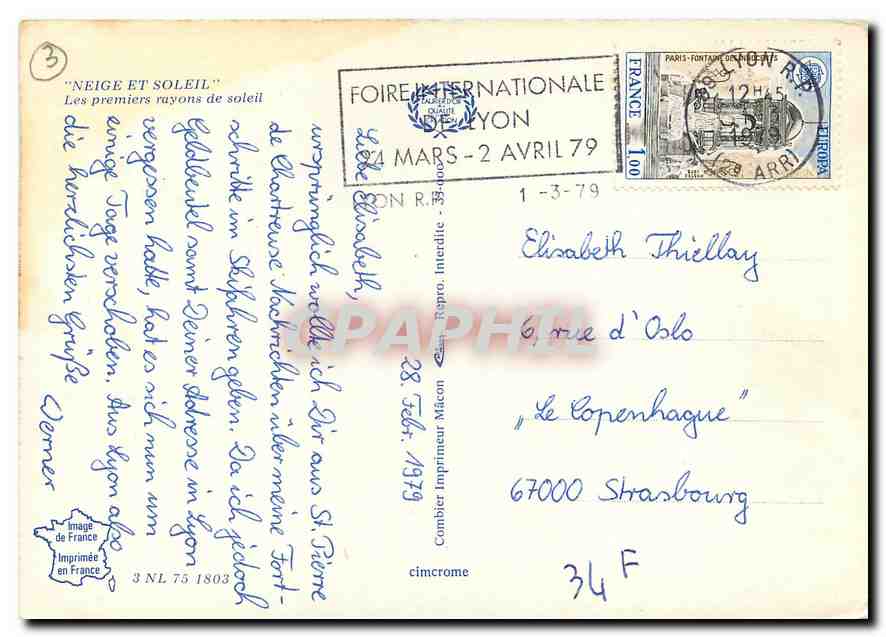 3
"NEIGE ET SOLEIL"
Les premiers rayons de soleil
28. Febr. 1979
Liebe Elisabeth,
ursprünglich wollte ich Dir aus St. Pierre
de Chartreuse Nachrichten über meine Fort-
schritte im Skifahren geben. Da ich jedoch
Geldbeutel samt Deiner Adresse in Lyon
vergessen hatte, hat es sich nun um
einige Tage verschoben. Aus Lyon also
die herzlichsten Grüße
Werner
Image
de France
Imprimée
en France
3 NL 75 1803
Combier Imprimeur Mâcon Cim Repro. Interdite - 35.000
cimcrome
FOIRE INTERNATIONALE
DE LYON
24 MARS - 2 AVRIL 79
YON R.P. 1 -3-79
LYON R.P.
12H45
1-3
1979
FRANCE 1,00
PARIS-FONTAINE DES INNOCENTS
EUROPA
Elisabeth Thiellay
6, rue d'Oslo
„Le Copenhague"
67000 Strasbourg
34 F
CPAPHIL